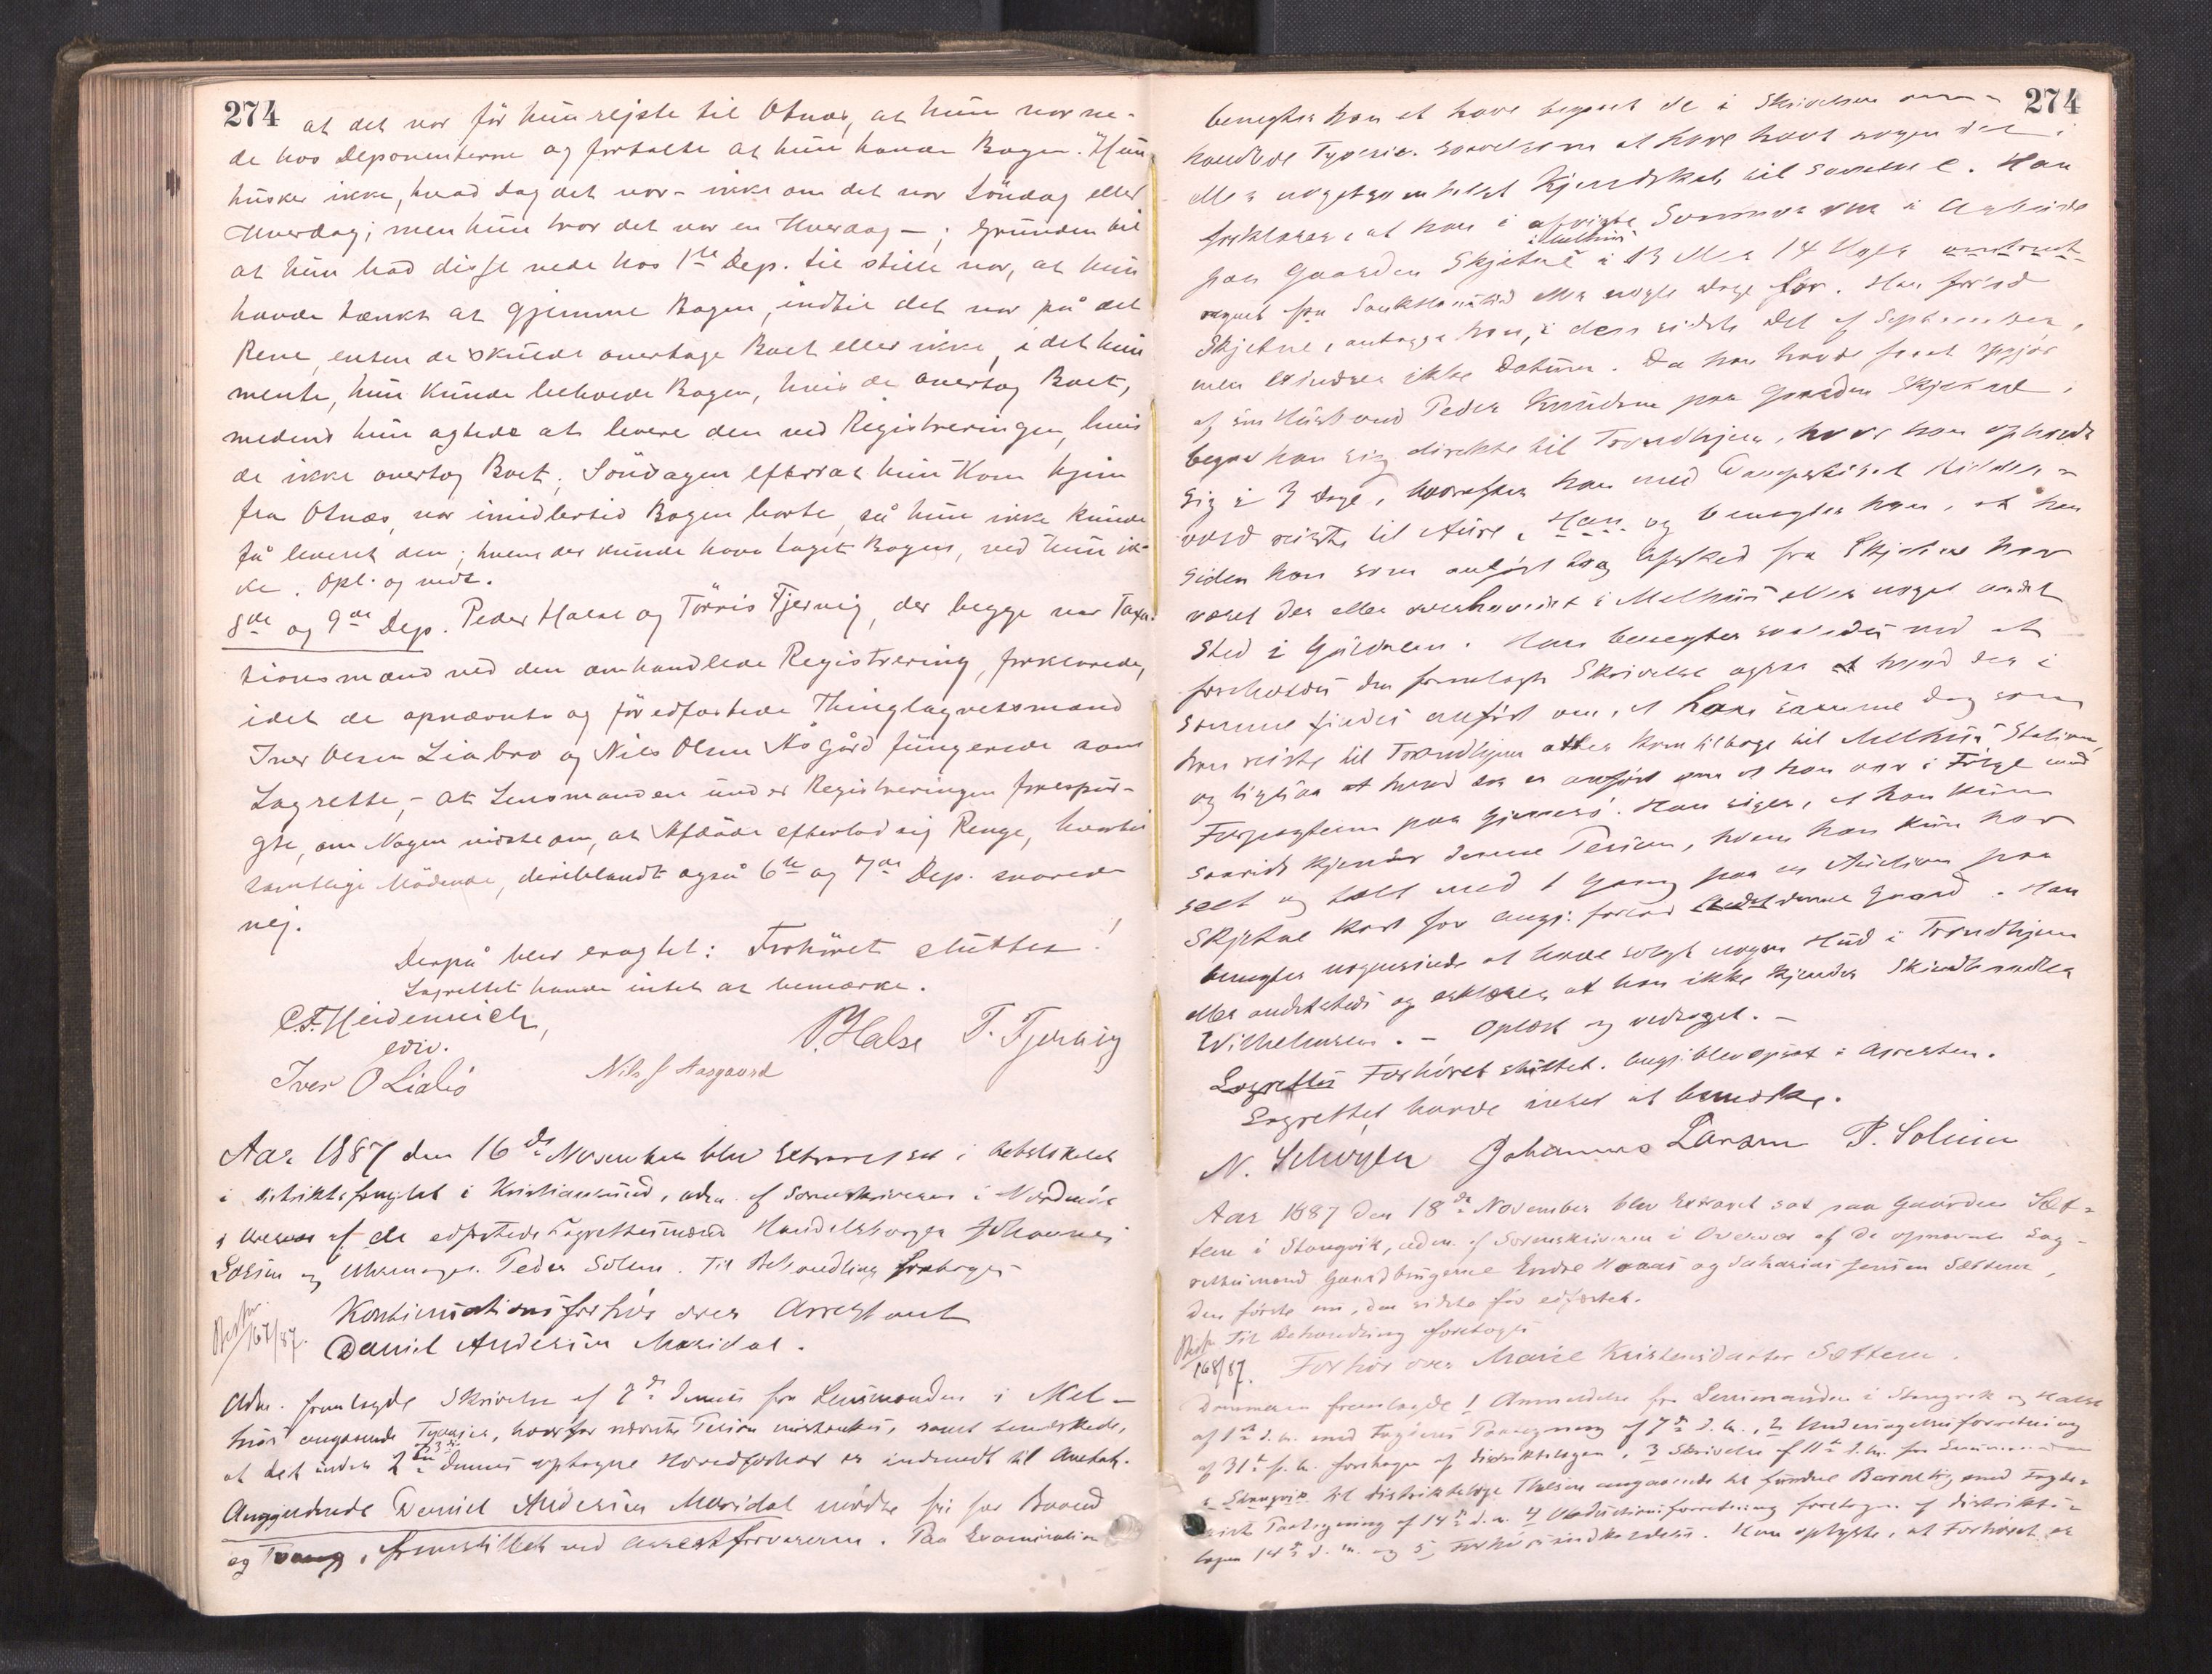 274
at det var før hun rejste til Otnæs, at hun var ne-
de hos Deponenterne og fortalte at hun havde Bogen. Hun
husker ikke, hvad Dag det var – ikke om det var Söndag eller
Hverdag; men hun tror det var en Hverdag –; Grunden til
at hun bad disse nede hos 1ste Dep. tie stille var, at hun
havde tænkt at gjemme Bogen, indtil det var på det
Rene, enten de skulde overtage Boet eller ikke, idet hun
mente, hun kunde behøve Bogen, hvis de overtog Boet,
medens hun agtede at levere den ved Registreringen, hvis
de ikke overtog Boet. Söndagen efterat hun kom hjem
fra Otnæs, var imidlertid Bogen borte, så hun ikke kunde
få leveret den; hvem der kunde have taget Bogen, ved hun ik-
ke. Opl. og vedt.
8de og 9de Dep. Peder Halse og Törris Tjervig, der begge var Taxa-
tionsmænd ved den omhandlede Registrering, forklarede,
idet de opnævnte og för edfæstede Thinglagretsmænd
Iver Olsen Liabø og Nils Olsen Åsgård fungerede som
Lagrette, – at Lensmanden under Registreringen forespur-
gte, om Nogen vidste om, at Afdøde efterlod sig Penge, hvortil
samtlige Mödende, deriblandt også 6te og 7de Dep. svarede
nej.
Derpå blev eragtet: Forhöret sluttes!
Lagrettet havde intet at bemærke.
C.F. Heidenreich,
edsv.
P. Halse T. Tjervig
Iver O Liabö Nils J Aasgaard
Aar 1887 den 16de November blev Extraret sat i
i Distriktsfængslet i Kristiansund, adm. af Sorenskriveren i Nordmøre
i Overvær af de edfæstede Lagrettesmænd Handelsborger Johannes
Larsen og Uhrmager Peder Solem. Til Behandling foretoges
167/87.
Kontinuationsforhör over Arrestant
Daniel Andersen Moridal.
Adm. fremlagde Skrivelse af 7de dennes fra Lensmanden i Mel-
hus angaaende Tyverier, hvorfor nævnte Person mistænkes, samt bemærkede,
at det under 2den dennes optagne Hovedforhør er indsendt til Amtet.
Anggjældende Daniel Andersen Moridal mødte fri for Baand
og Tvang, fremstillet ved Arrestforvareren. Paa Examination
274
benegter han at have begaaet de i Skrivelsen om-
handlede Tyverier saavelsom at have havt nogen Del i
eller nogetsomhelst Kjendskab til samme. Han
forklarer, at han i afvigte Sommer var i Arbeide
i Melhus
paa Gaarden Skjetne i 13 eller 14 Uger omtrent
regnet fra Sankthanstid eller nogle Dage før. Han forlod
Skjetne, antager han, i den sidste Del af September,
men erindrer ikke Datum. Da han havde faaet Opgjør
af sin Husbond Peder Knudsen paa Gaarden Skjetne,
begav han sig direkte til Trondhjem, hvor han opholdt
sig i 3 Dage, hvorefter han med Dampskibet
reiste til Aure. Han benegter han, at han
siden han som anført tog Afsked fra Skjetne har
været der eller overhovedet i Melhus eller noget andet
Sted i Guldalen. Han benegter saaledes ved at
foreholdes den fremlagte Skrivelse ogsaa hvad der i
samme findes anført om, at han samme Dag som
han reiste til Trondhjem atter kom tilbage til Melhus Station,
og ligesaa at hvad der er anført om at han var i Følge med
Forpagteren paa Gimse. Han siger, at han kun
saavidt kjender denne Person, hvem han kun har
seet og talt med 1 Gang paa en Auktion paa
Skjetne kort før Angj. forlod denne Gaard. Han
benegter nogensinde at have solgt nogen Hud i Trondhjem
eller andetsteds og erklærer at han ikke kjender Skindhandler
Wilhelmsen. – Oplæst og vedtaget. –
Lagrettes Forhöret sluttet. Angj. blev opsat i Arresten.
Lagrettet havde intet at bemærke.
N. Johannes Larsen P. Solem
Aar 1887 den 18de November blev Extraret sat paa Gaarden Sæt-
tem i Stangvik, adm. af Sorenskriveren i Overvær af de opnævnte Lag-
rettesmænd Gaardbrugerne Endre Honnes og Sakarias Jensen Sættem,
den første nu, den sidste før edfæstet.
Til Behandling foretoges
168/87.
Forhör over Marie Kristensdatter Sættem.
Dommeren fremlagde 1 Anmeldelse fra Lensmanden i Stangvik og Halse
af 1ste d.m. med Fogdens Paategning af 7de d.m., 2 Undersøgelsesforretning
af 31te f.m. foretagen af Distriktslægen, 3 Skrivelse af 11te d.m. fra Lensmanden
i Stangvik til Distriktslæge angaaende det fundne Barnelig med Fogde-
Paategning af 14de d.m. 4 Obduktionsforretning foretagen af Distrikts-
lægen 14de d.m. og 5, Forhörsindkaldelse. Han oplyste, at Forhöret er